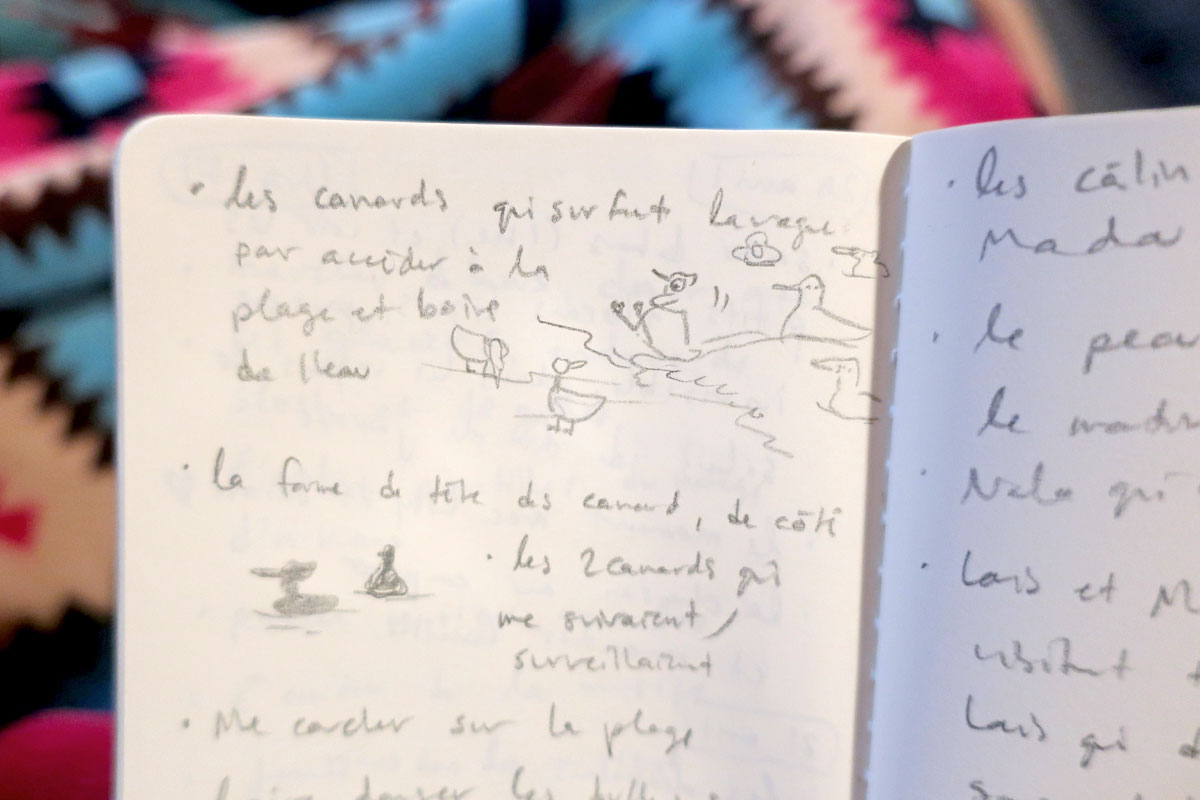 • les canards qui surfent la vague
par accéder à la
plage et boire
de l'eau
• la forme de tête des canard, de côté
• les 2 canards qui
me suivaient /
surveillaient
• Me coucher sur la plage
danser les
• les câlin
Mada
• le
le
• Nala qui
• Laïs et M
visitent
Laïs qui